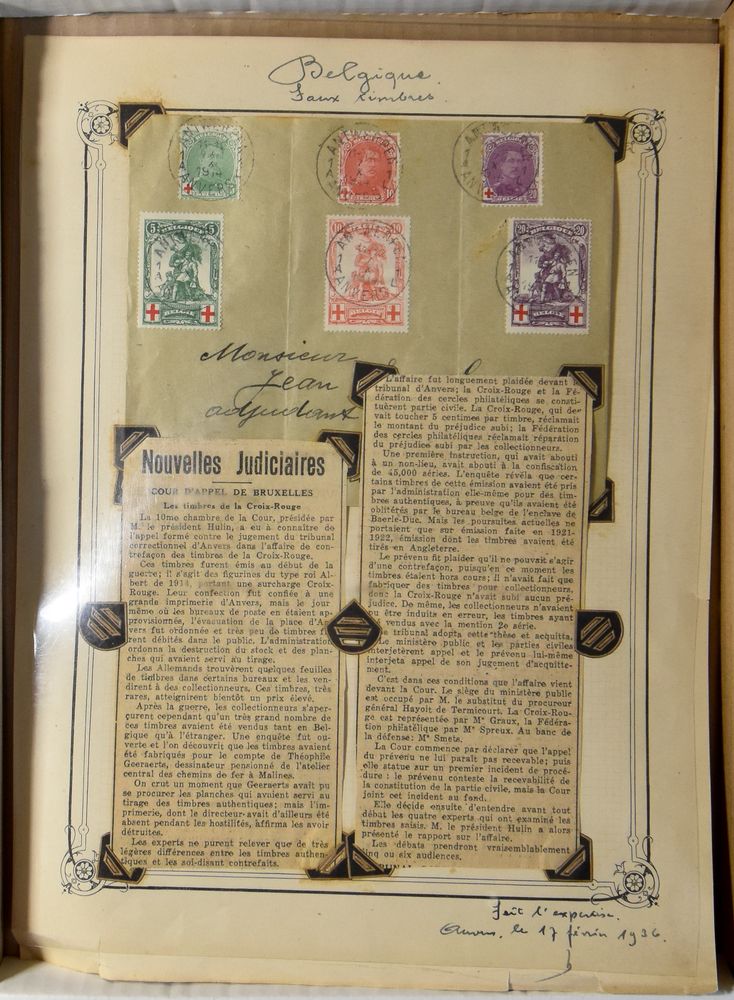 Belgique.
Faux timbres.
ANTWERPEN
1914
ANVERS
ANTWERPEN
10
ANVERS
5 BELGIQUE 5
10 BELGIQUE 10
ANTWERPEN
ANVERS
20 BELGIQUE 20
BELGIË
BELGIË
BELGIË
Monsieur
Jean
adjudant
Nouvelles Judiciaires
COUR D'APPEL DE BRUXELLES
Les timbres de la Croix-Rouge
La 10me chambre de la Cour, présidée par
M. le président Hulin, a eu à connaître de
l'appel formé contre le jugement du tribunal
correctionnel d'Anvers dans l'affaire de con-
trefaçon des timbres de la Croix-Rouge.
Ces timbres furent émis au début de la
guerre; il s'agit des figurines du type roi Al-
bert de 1914, portant une surcharge Croix-
Rouge. Leur confection fut confiée à une
grande imprimerie d'Anvers, mais le jour
même où les bureaux de poste en étaient ap-
provisionnés, l'évacuation de la place d'An-
vers fut ordonnée et très peu de timbres fu-
rent débités dans le public. L'administration
ordonna la destruction du stock et des plan-
ches qui avaient servi au tirage.
Les Allemands trouvèrent quelques feuilles
de timbres dans certains bureaux et les ven-
dirent à des collectionneurs. Ces timbres, très
rares, atteignirent bientôt un prix élevé.
Après la guerre, les collectionneurs s'aper-
çurent cependant qu'un très grand nombre de
ces timbres avaient été vendus tant en Bel-
gique qu'à l'étranger. Une enquête fut ou-
verte et l'on découvrit que les timbres avaient
été fabriqués pour le compte de Théophile
Goeraerts, dessinateur pensionné de l'atelier
central des chemins de fer à Malines.
On crut un moment que Geeraerts avait pu
se procurer les planches qui avaient servi au
tirage des timbres authentiques; mais l'im-
primerie, dont le directeur avait d'ailleurs été
absent pendant les hostilités, affirma les avoir
détruites.
Les experts ne purent relever que de très
légères différences entre les timbres authen-
tiques et les soi-disant contrefaits.
L'affaire fut longuement plaidée devant le
tribunal d'Anvers; la Croix-Rouge et la Fé-
dération des cercles philatéliques se consti-
tuèrent partie civile. La Croix-Rouge, qui de-
vait toucher 5 centimes par timbre, réclamait
le montant du préjudice subi; la Fédération
des cercles philatéliques réclamait réparation
du préjudice subi par les collectionneurs.
Une première instruction, qui avait abouti
à un non-lieu, avait abouti à la confiscation
de 45,000 séries. L'enquête révéla que cer-
tains timbres de cette émission avaient été pris
par l'administration elle-même pour des tim-
bres authentiques, à preuve qu'ils avaient été
oblitérés par le bureau belge de l'enclave de
Baerle-Duc. Mais les poursuites actuelles ne
portaient que sur émission faite en 1921-
1922, émission dont les timbres avaient été
tirés en Angleterre.
Le prévenu fit plaider qu'il ne pouvait s'agir
d'une contrefaçon, puisqu'en ce moment les
timbres étaient hors cours; il n'avait fait que
fabriquer des timbres pour collectionneurs,
donc la Croix-Rouge n'avait subi aucun pré-
judice. De même, les collectionneurs n'avaient
pu être induits en erreur, les timbres ayant
vendus avec la mention 2e série.
tribunal adopta cette thèse et acquitta.
Le ministère public et les parties civiles
interjetèrent appel et le prévenu lui-même
interjeta appel de son jugement d'acquitte-
ment.
C'est dans ces conditions que l'affaire vient
devant la Cour. Le siège du ministère public
est occupé par M. le substitut du procureur
général Hayoit de Termicourt. La Croix-Rou-
ge est représentée par Me Graux, la Fédéra-
tion philatélique par Me Spreux. Au banc de
la défense: Me Smets.
La Cour commence par déclarer que l'appel
du prévenu ne lui paraît pas recevable; puis
elle statue sur un premier incident de procé-
dure : le prévenu conteste la recevabilité de
la constitution de la partie civile, mais la Cour
joint cet incident au fond.
Elle décide ensuite d'entendre avant tout
débat les quatre experts qui ont examiné les
timbres saisis. M. le président Hulin a alors
présenté le rapport sur l'affaire.
Les débats prendront vraisemblablement
cinq ou six audiences.
fait l'expertise.
Anvers, le 17 février 1936.